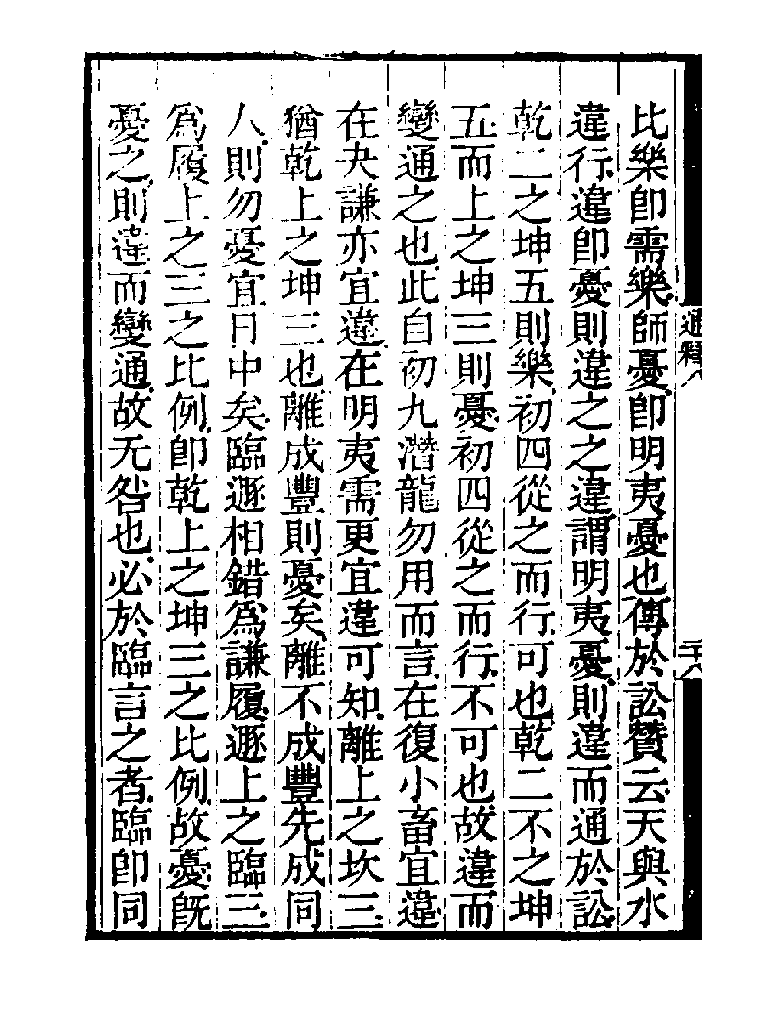 比樂卽需樂師憂卽明夷憂也傳於訟贊云天與水
違行違卽憂則違之之違謂明夷憂則違而通於訟
乾二之坤五則樂初四從之而行可也乾二不之坤
五而上之坤三則憂初四從之而行不可也故違而
變通之也此自初九潛龍勿用而言在復小畜宜違
在夬謙亦宜違在明夷需更宜違可知離上之坎三
猶乾上之坤三也離成豐則憂矣離不成豐先成同
人則勿憂宜日中矣臨遯相錯爲謙履遯上之臨三
爲履上之三之比例卽乾上之坤三之比例故憂旣
憂之則違而變通故无咎也必於臨言之者臨卽同
通釋八
二十八